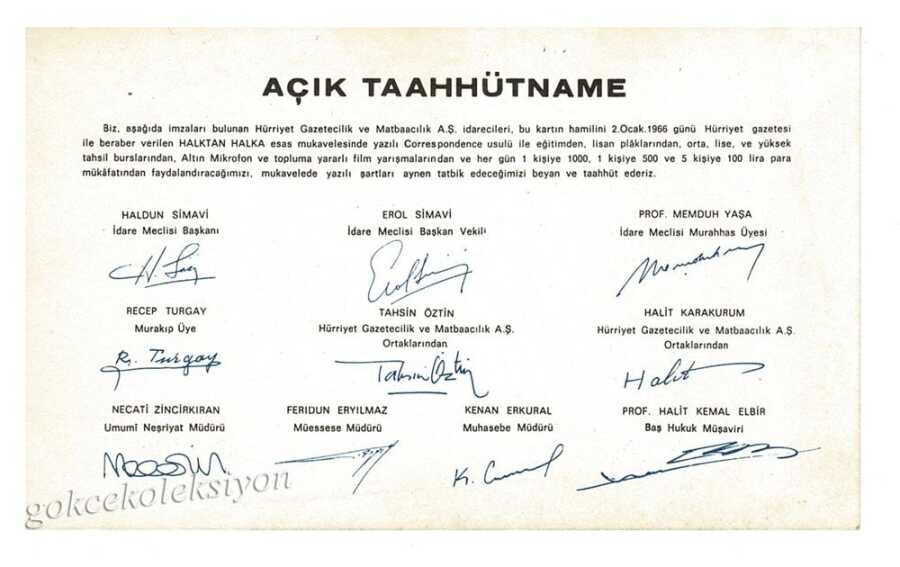 AÇIK TAAHHÜTNAME
Biz, aşağıda imzaları bulunan Hürriyet Gazetecilik ve Matbaacılık A.Ş. idarecileri, bu kartın hamilini 2.Ocak.1966 günü Hürriyet gazetesi
ile beraber verilen HALKTAN HALKA esas mukavelesinde yazılı Correspondence usulü ile eğitimden, lisan plâklarından, orta, lise, ve yüksek
tahsil burslarından, Altın Mikrofon ve topluma yararlı film yarışmalarından ve her gün 1 kişiye 1000, 1 kişiye 500 ve 5 kişiye 100 lira para
mükâfatından faydalandıracağımızı, mukavelede yazılı şartları aynen tatbik edeceğimizi beyan ve taahhüt ederiz.
HALDUN SİMAVİ EROL SİMAVİ PROF. MEMDUH YAŞA
İdare Meclisi Başkanı İdare Meclisi Başkan Vekili İdare Meclisi Murahhas Üyesi
RECEP TURGAY TAHSİN ÖZTİN HALİT KARAKURUM
Murakıp Üye Hürriyet Gazetecilik ve Matbaacılık A.Ş. Hürriyet Gazetecilik ve Matbaacılık A.Ş.
Ortaklarından Ortaklarından
R. Turgay Tahsin Öztin Halit
NECATİ ZİNCİRKIRAN FERİDUN ERYILMAZ KENAN ERKURAL PROF. HALİT KEMAL ELBİR
Umumî Neşriyat Müdürü Müessese Müdürü Muhasebe Müdürü Baş Hukuk Müşaviri
gokcekoleksiyon